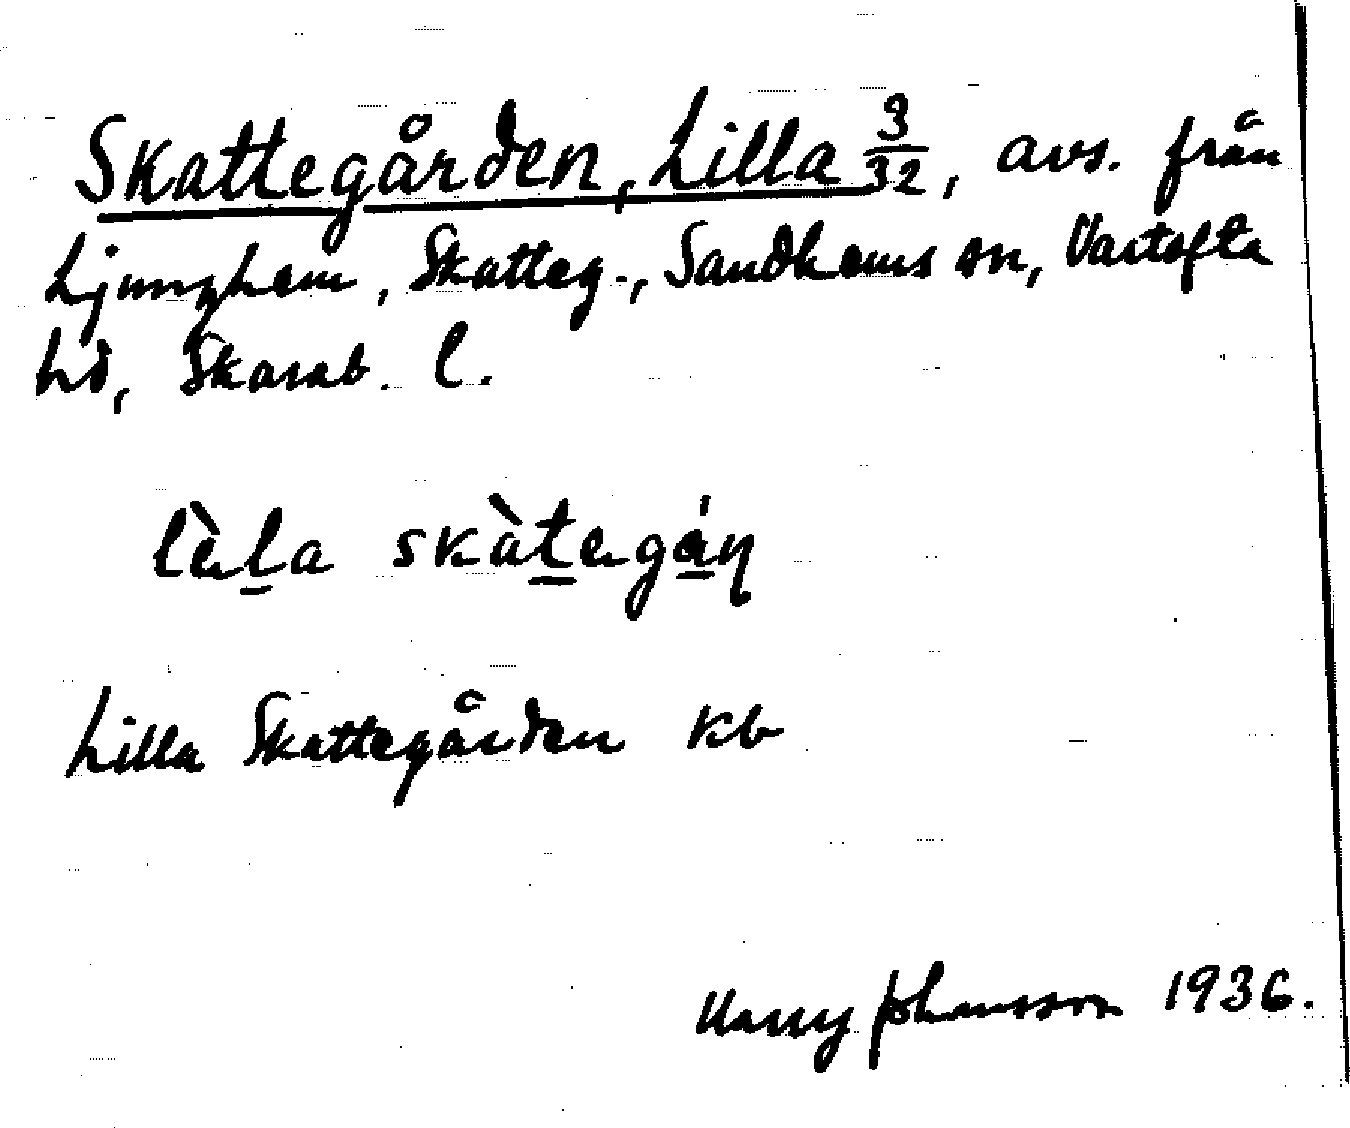 Skattegården, Lilla 3/32, avs. från
Ljunghem, Skatteg., Sandhems sn, Vartofta
hd, Skarab. l.
lèl̲a skàt̲egá̲ṇ
Lilla Skattegården kb
Harry Johansson 1936.